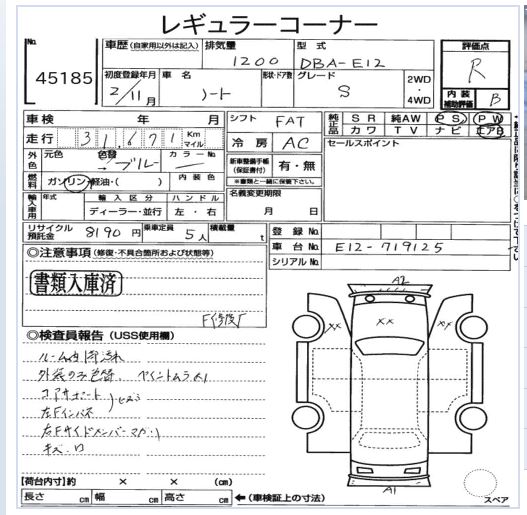 レギュラーコーナー
No. 45185
車歴 (自家用以外は記入) 排気量 1200 型式 DBA-E12
初度登録年月 2/11月 車名 ノート 形状・ドア数 グレード S 2WD・4WD
評価点 R
内装補助評価 B
車検 年 月 シフト FAT
純正品 SR 純AW PS PW
カワ TV ナビ エアB
走行 31,671 Km マイル 冷房 AC
セールスポイント
外色 元色 色替 → ブルー カラーNo.
新車整備手帳(保証書付) 有・無
※書類と一緒に保管下さい。
燃料 ガソリン・軽油・( ) 内装色
名義変更期限 月 日
輸入車用 年式 輸入区分 ハンドル
ディーラー・並行 左・右
リサイクル預託金 8190円 乗車定員 5人 積載量 t
登録No.
車台No. E12-719125
シリアルNo.
◎注意事項 (修復・不具合箇所および状態等)
書類入庫済
◎検査員報告 (USS使用欄)
外装のみ色替、ペイントムラ
コアサポート
左Fインパネ
右Fサイドメンバーマガリ
キズ
A2
XX XX XX
A1
スペア
【荷台内寸】約 × × (cm)
長さ cm 幅 cm 高さ cm ←(車検証上の寸法)